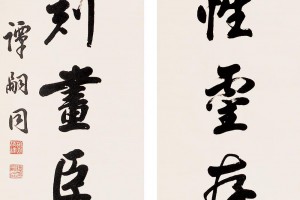 性靈存
刻畫臣
譚嗣同